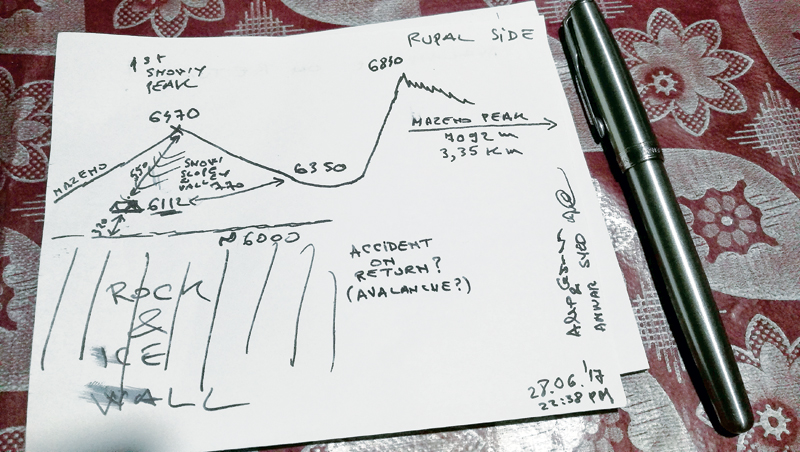 RUPAL SIDE
1ST
SNOWY
PEAK
6470
6830
MAZENO PEAK
7092 m
3,35 Km
MAZENO
SNOW
SLOPE
WALL
270
6350
6112
~6000
ROCK
&
ICE
WALL
ACCIDENT
ON
RETURN?
(AVALANCHE?)
&
ANWAR SYED
28.06.'17
22:38 PM